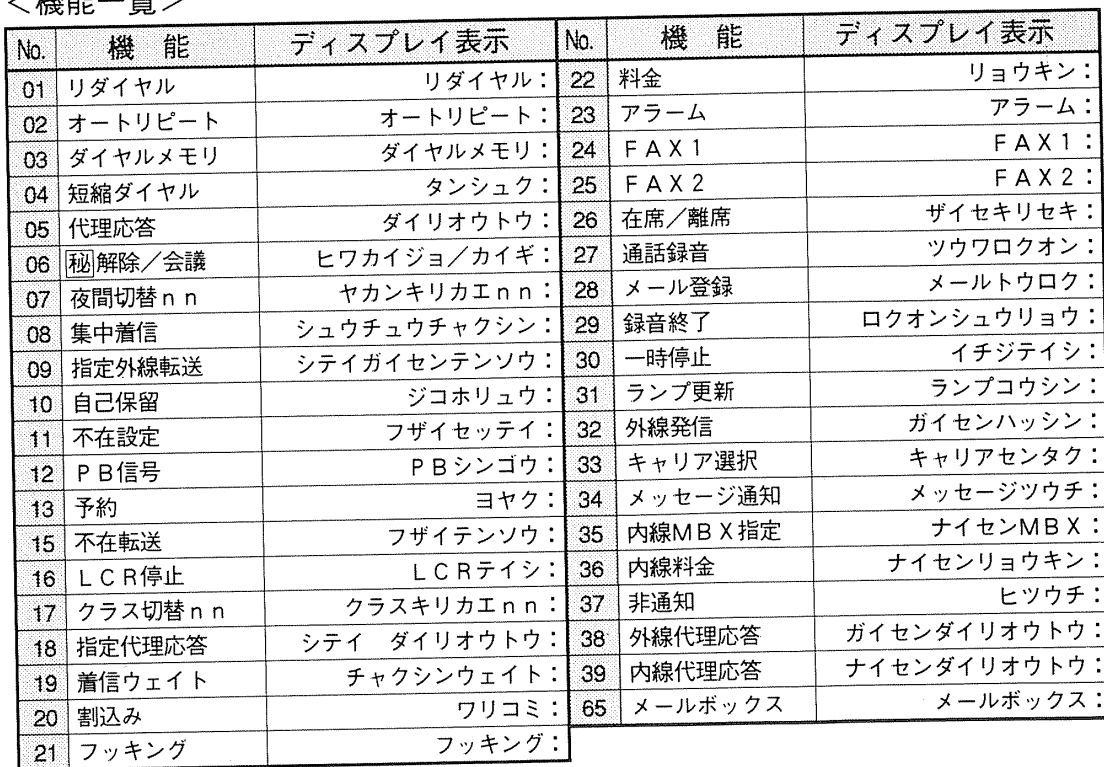 <機能一覧>
No. 機能 ディスプレイ表示
01 リダイヤル リダイヤル：
02 オートリピート オートリピート：
03 ダイヤルメモリ ダイヤルメモリ：
04 短縮ダイヤル タンシュク：
05 代理応答 ダイリオウトウ：
06 ㊙解除／会議 ヒワカイジョ／カイギ：
07 夜間切替ｎｎ ヤカンキリカエｎｎ：
08 集中着信 シュウチュウチャクシン：
09 指定外線転送 シテイガイセンテンソウ：
10 自己保留 ジコホリュウ：
11 不在設定 フザイセッテイ：
12 ＰＢ信号 ＰＢシンゴウ：
13 予約 ヨヤク：
15 不在転送 フザイテンソウ：
16 ＬＣＲ停止 ＬＣＲテイシ：
17 クラス切替ｎｎ クラスキリカエｎｎ：
18 指定代理応答 シテイ　ダイリオウトウ：
19 着信ウェイト チャクシンウェイト：
20 割込み ワリコミ：
21 フッキング フッキング：
No. 機能 ディスプレイ表示
22 料金 リョウキン：
23 アラーム アラーム：
24 ＦＡＸ１ ＦＡＸ１：
25 ＦＡＸ２ ＦＡＸ２：
26 在席／離席 ザイセキリセキ：
27 通話録音 ツウワロクオン：
28 メール登録 メールトウロク：
29 録音終了 ロクオンシュウリョウ：
30 一時停止 イチジテイシ：
31 ランプ更新 ランプコウシン：
32 外線発信 ガイセンハッシン：
33 キャリア選択 キャリアセンタク：
34 メッセージ通知 メッセージツウチ：
35 内線ＭＢＸ指定 ナイセンＭＢＸ：
36 内線料金 ナイセンリョウキン：
37 非通知 ヒツウチ：
38 外線代理応答 ガイセンダイリオウトウ：
39 内線代理応答 ナイセンダイリオウトウ：
65 メールボックス メールボックス：